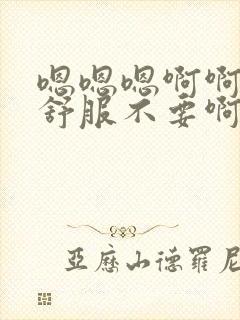 嗯嗯嗯啊啊
舒服不要啊
亞歷山德羅尼